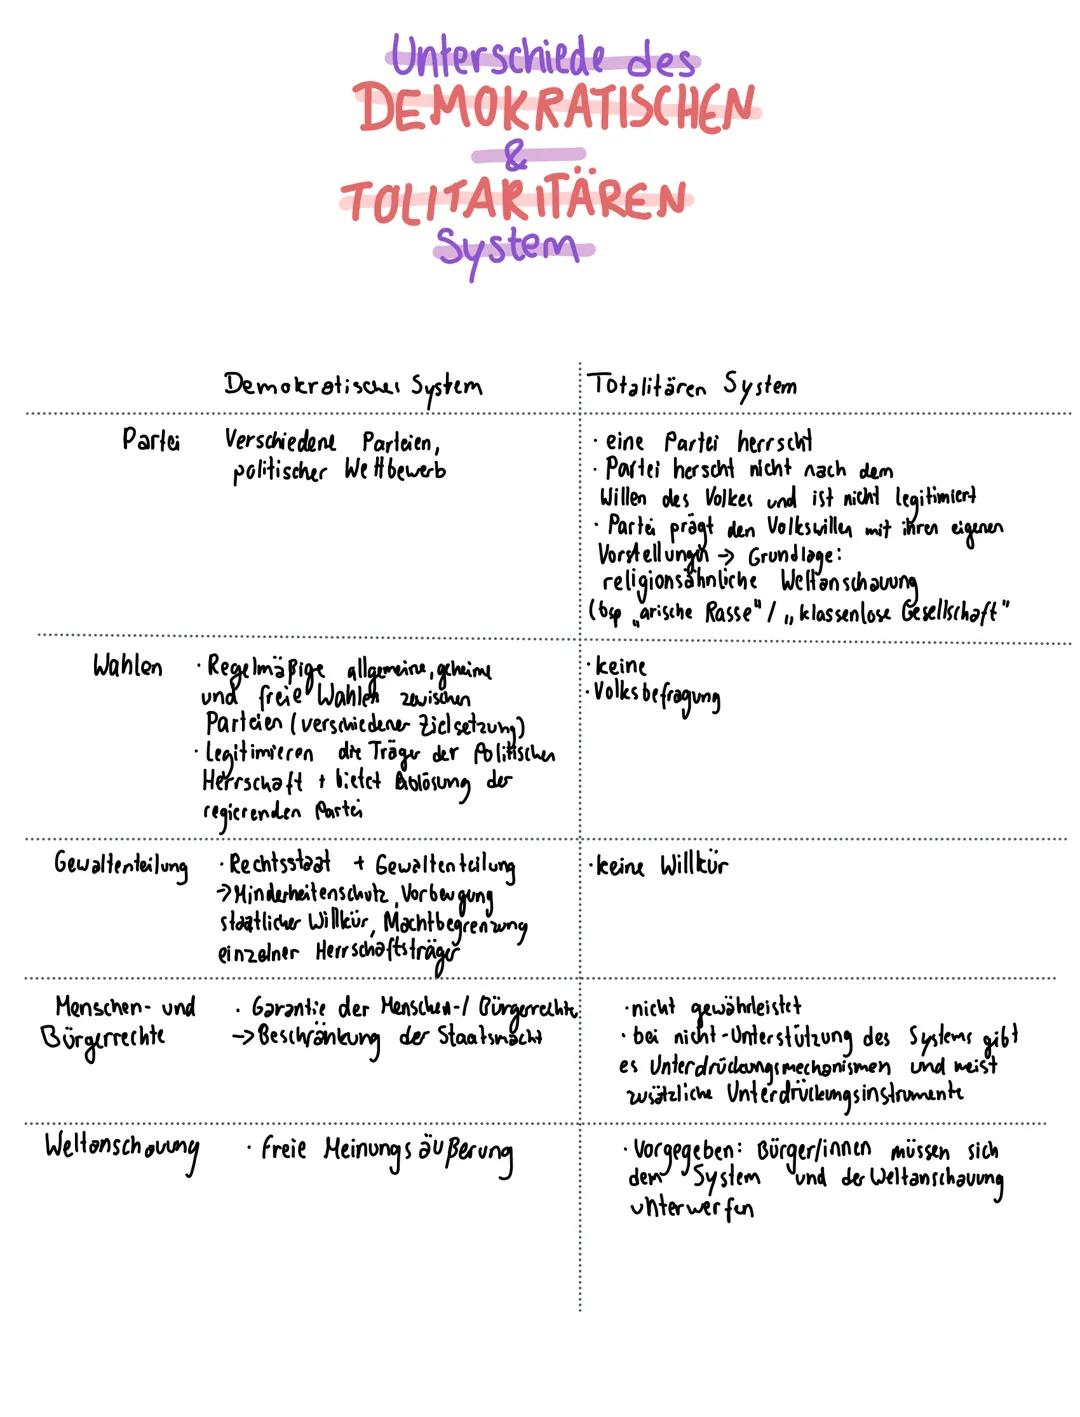 Unterschiede des
DEMOKRATISCHEN
&
TOLITARITÄREN
System
Demokratisches System
Totalitären System
Partei
Verschiedene Parteien,
politischer Wettbewerb
· eine Partei herrscht
· Partei herscht nicht nach dem
Willen des Volkes und ist nicht legitimiert
· Partei prägt den Volkswillen mit ihren eigenen
Vorstellungn → Grundlage:
religionsähnliche Weltanschauung
(bsp „arische Rasse" / „klassenlose Gesellschaft"
Wahlen
· Regelmäßige allgemeine, geheime
und freie Wahlen zwischen
Parteien (verschiedener Zielsetzung)
· Legitimieren die Träger der Politischen
Herrschaft + bietet Ablösung der
regierenden Partei
· keine
· Volksbefragung
Gewaltenteilung
· Rechtsstaat + Gewaltenteilung
→ Minderheitenschutz, Vorbeugung
staatlicher Willkür, Machtbegrenzung
einzelner Herrschaftsträger
· keine Willkür
Menschen- und
Bürgerrechte
· Garantie der Menschen-/ Bürgerrechte
→ Beschränkung der Staatsmacht
· nicht gewährleistet
· bei nicht-Unterstützung des Systems gibt
es Unterdrückungsmechanismen und meist
zusätzliche Unterdrückungsinstrumente
Weltanschauung
· freie Meinungsäußerung
· Vorgegeben: Bürger/innen müssen sich
dem System und der Weltanschauung
unterwerfen